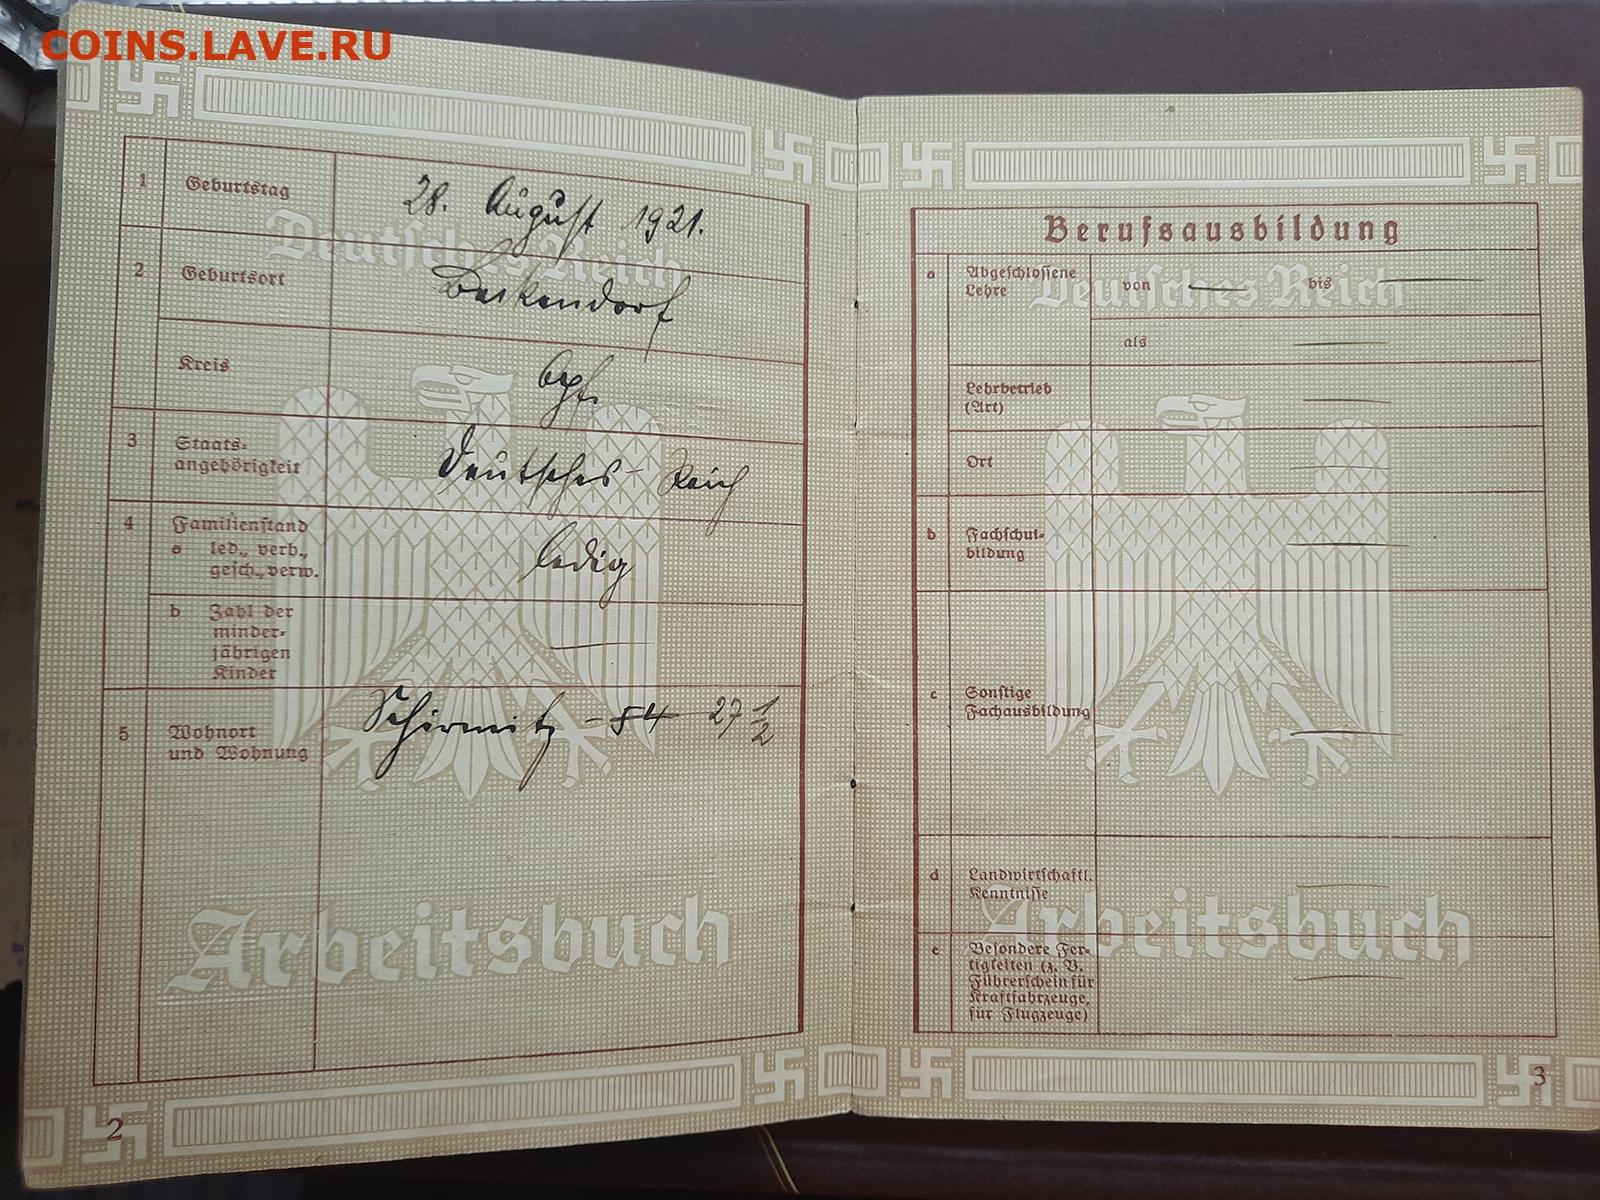 COINS.LAVE.RU
1 Geburtstag 28. August 1921.
Deutsches Reich
2 Geburtsort
Kreis
3 Staats-
angehörigkeit Deutsches-Reich
4 Familienstand
a led., verb.,
gesch., verw. ledig
b Zahl der
minder-
jährigen
Kinder —
5 Wohnort
und Wohnung Schirmitz - 54 27 1/2
Arbeitsbuch
2
Berufsausbildung
a Abgeschlossene
Lehre von — bis —
Deutsches Reich
als —
Lehrbetrieb
(Art) —
Ort —
b Fachschul-
bildung —
c Sonstige
Fachausbildung —
d Landwirtschaftl.
Kenntnisse —
Arbeitsbuch
e Besondere Fer-
tigkeiten (z. B.
Führerschein für
Kraftfahrzeuge,
für Flugzeuge) —
3